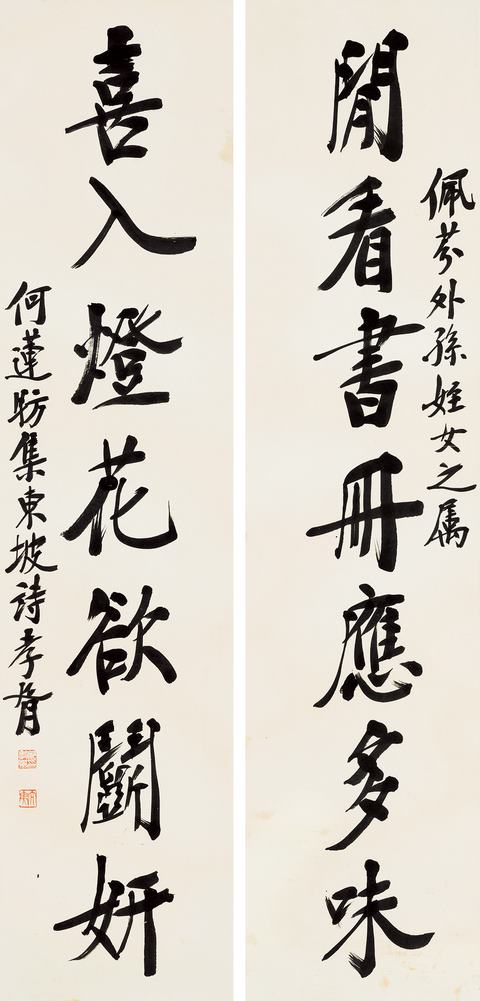 佩芬外孫姪女之属
閒看書冊應多味
喜入燈花欲鬭妍
何蓮昉集東坡詩孝胥